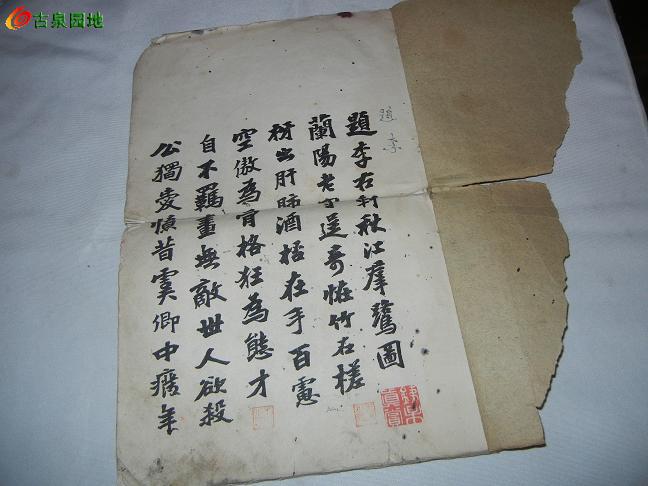 古泉园地
題李
題李右村秋江羣鷺圖
蘭陽老守逞奇恠竹石槎
枒出肝肺酒桮在手百慮
空傲為骨格狂為態才
自不羈畫無敵世人欲殺
公獨愛憶昔虞卿中廢年
真賞